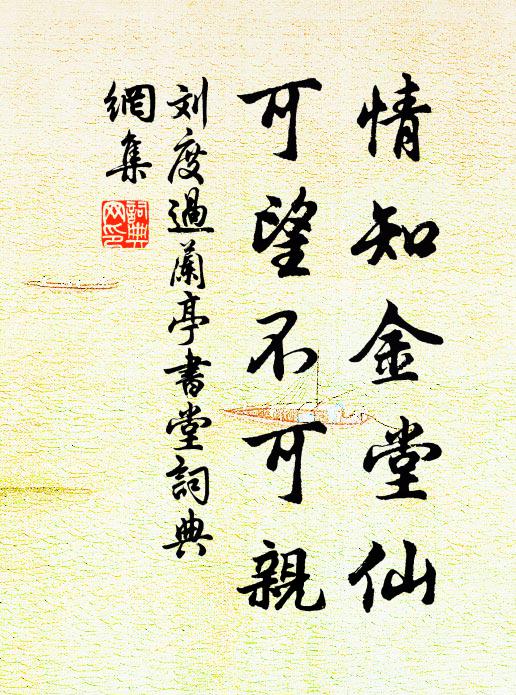 情知金堂仙
可望不可親
刘度過蘭亭書堂詞典
網集
詞典
网印